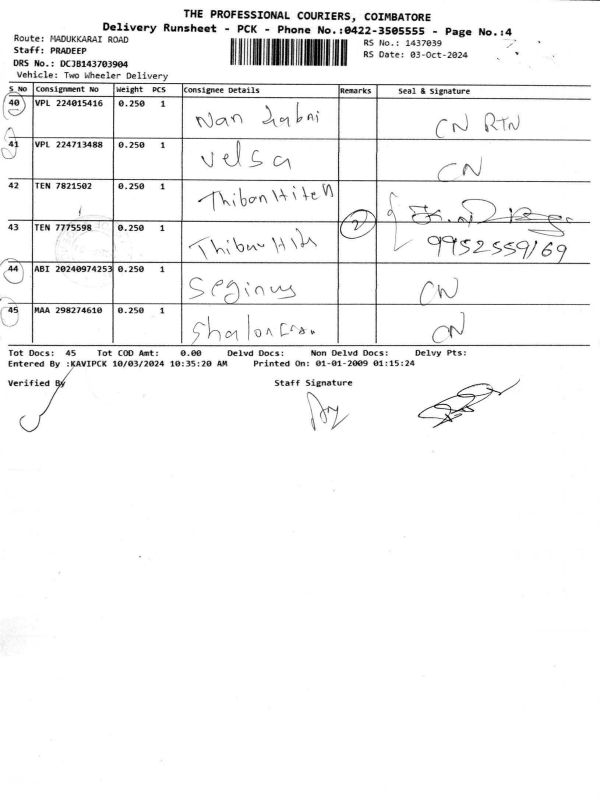 THE PROFESSIONAL COURIERS, COIMBATORE
Delivery Runsheet - PCK - Phone No.:0422-3505555 - Page No.:4
Route: MADUKKARAI ROAD RS No.: 1437039
Staff: PRADEEP RS Date: 03-Oct-2024
DRS No.: DCJB143703904
Vehicle: Two Wheeler Delivery
S No Consignment No Weight PCS Consignee Details Remarks Seal & Signature
40 VPL 224015416 0.250 1 CN RTN
41 VPL 224713488 0.250 1 Velsa CN
42 TEN 7821502 0.250 1
43 TEN 7775598 0.250 1 2 9952559169
44 ABI 20240974253 0.250 1 Seginus CN
45 MAA 298274610 0.250 1 CN
Tot Docs: 45 Tot COD Amt: 0.00 Delvd Docs: Non Delvd Docs: Delvy Pts:
Entered By :KAVIPCK 10/03/2024 10:35:20 AM Printed On: 01-01-2009 01:15:24
Verified By Staff Signature